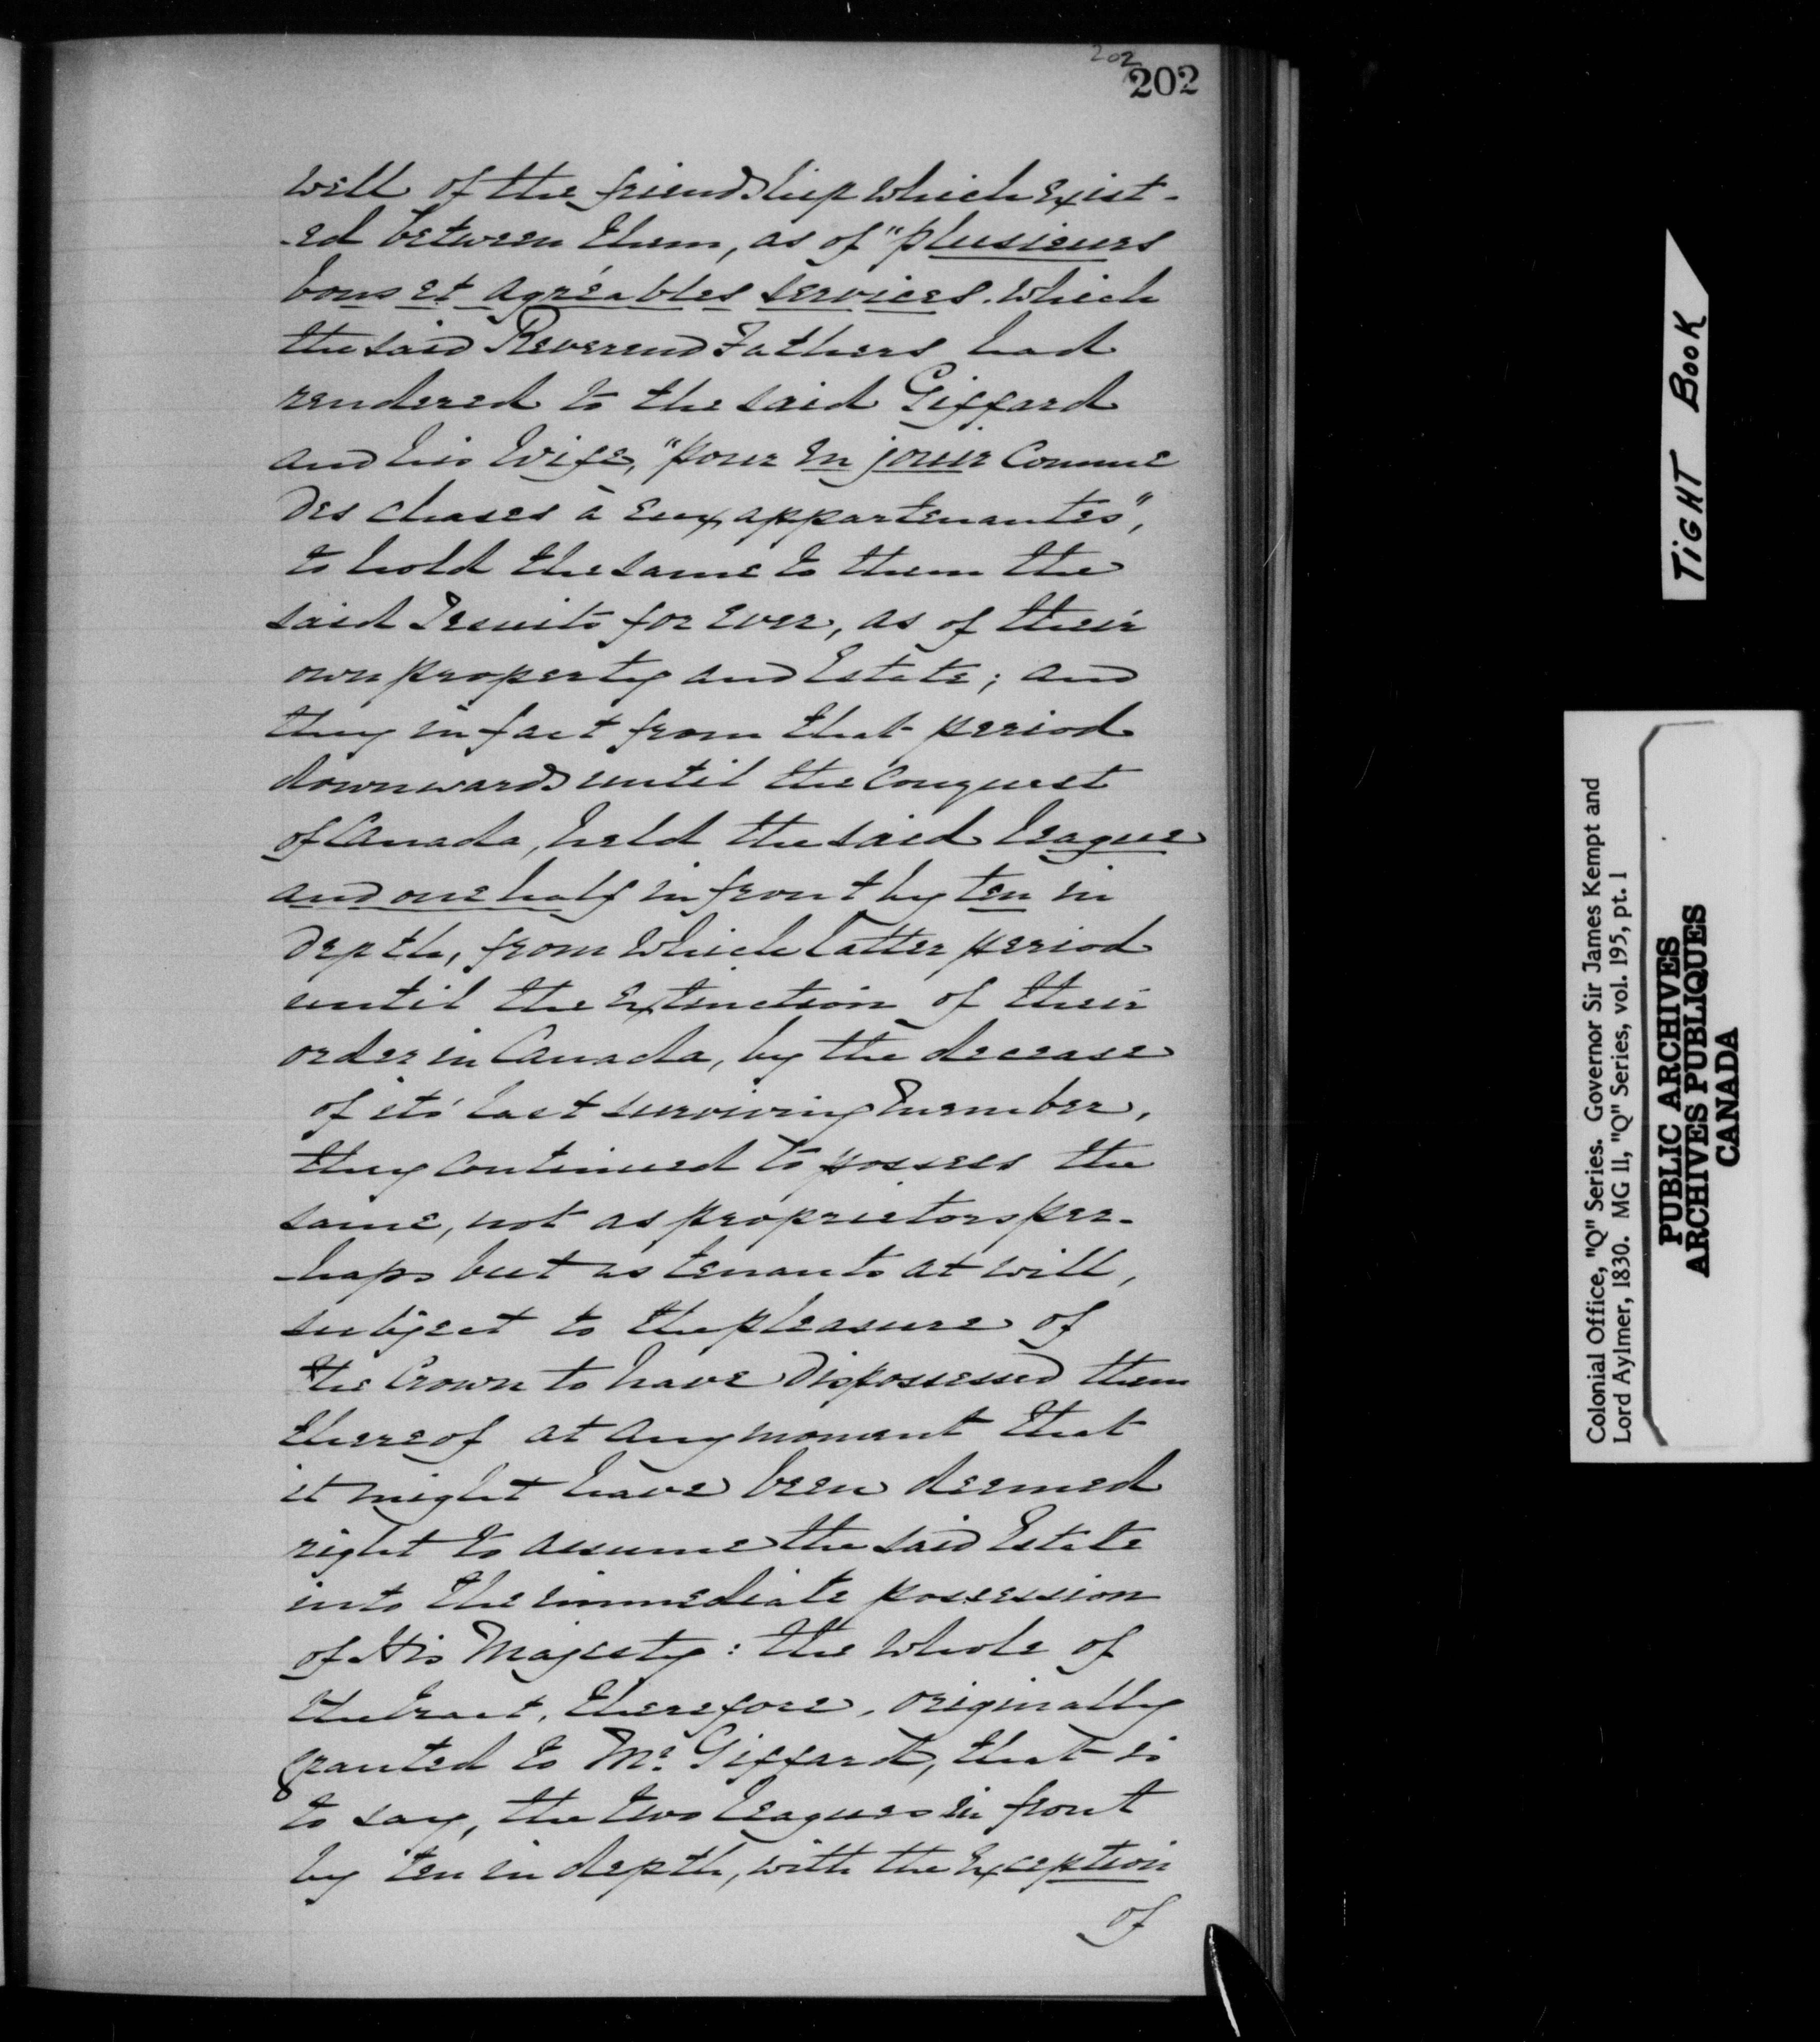 202
202
well of the friendship which exist-
-ed between them, as of "plusieurs
bons et agréables services. which
the said Reverend Fathers had
rendered to the said Giffard
and his wife, "pour en jouir comme
des choses à eux appartenantes",
to hold the same to them the
said Jesuits for ever, as of their
own property and Estate; and
they in fact from that period
downwards until the conquest
of Canada, held the said league
and one half in front by ten in
depth, from which latter period
until the extinction of their
order in Canada, by the decease
of its' last surviving member,
they continued to possess the
same, not as proprietors per-
-haps but as tenants at will,
subject to the pleasure of
the Crown to have dispossessed them
thereof at any moment that
it might have been deemed
right to assume the said Estate
into the immediate possession
of His Majesty: the whole of
the tract, therefore, originally
granted to Mr. Giffard, that is
to say, the two leagues in front
by ten in depth, with the exception
of
TIGHT BOOK
Colonial Office, "Q" Series. Governor Sir James Kempt and
Lord Aylmer, 1830. MG 11, "Q" Series, vol. 195, pt. 1
PUBLIC ARCHIVES
ARCHIVES PUBLIQUES
CANADA